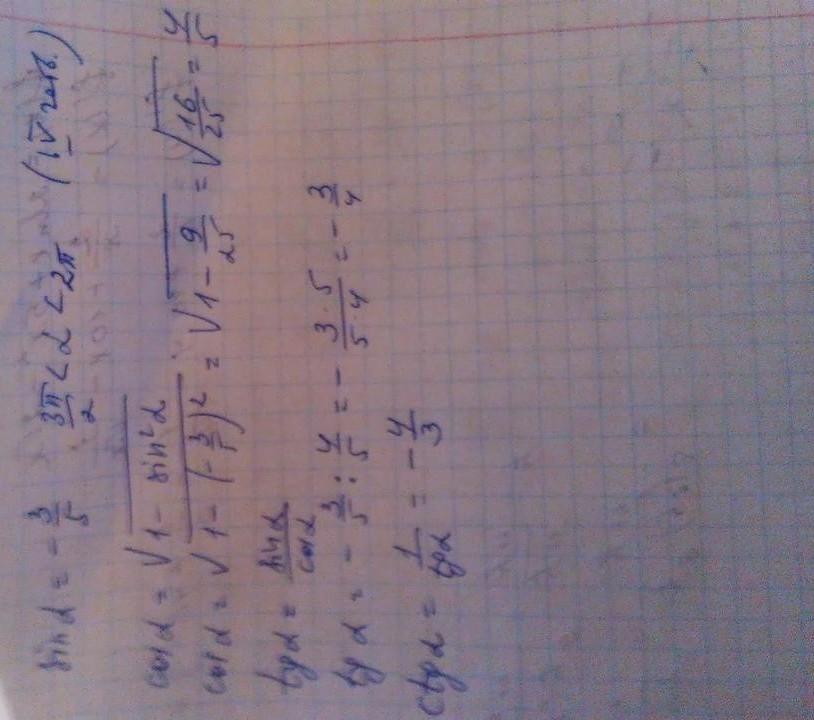 sin α = - 3/5   3π/2 < α < 2π   (IV четв.)
cos α = √(1 - sin² α)
cos α = √(1 - (-3/5)²) = √(1 - 9/25) = √(16/25) = 4/5
tg α = sin α / cos α
tg α = - 3/5 : 4/5 = - (3 · 5)/(5 · 4) = - 3/4
ctg α = 1/tg α = - 4/3